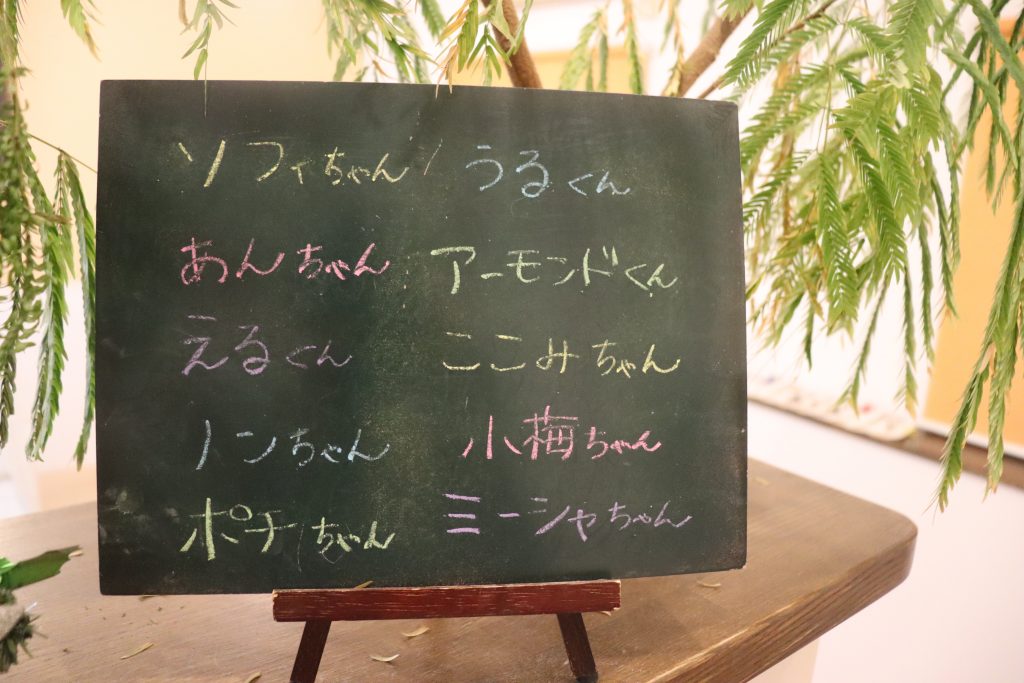 ソフィちゃん うるくん
あんちゃん アーモンドくん
えるくん ここみちゃん
ノンちゃん 小梅ちゃん
ポチちゃん ミーシャちゃん